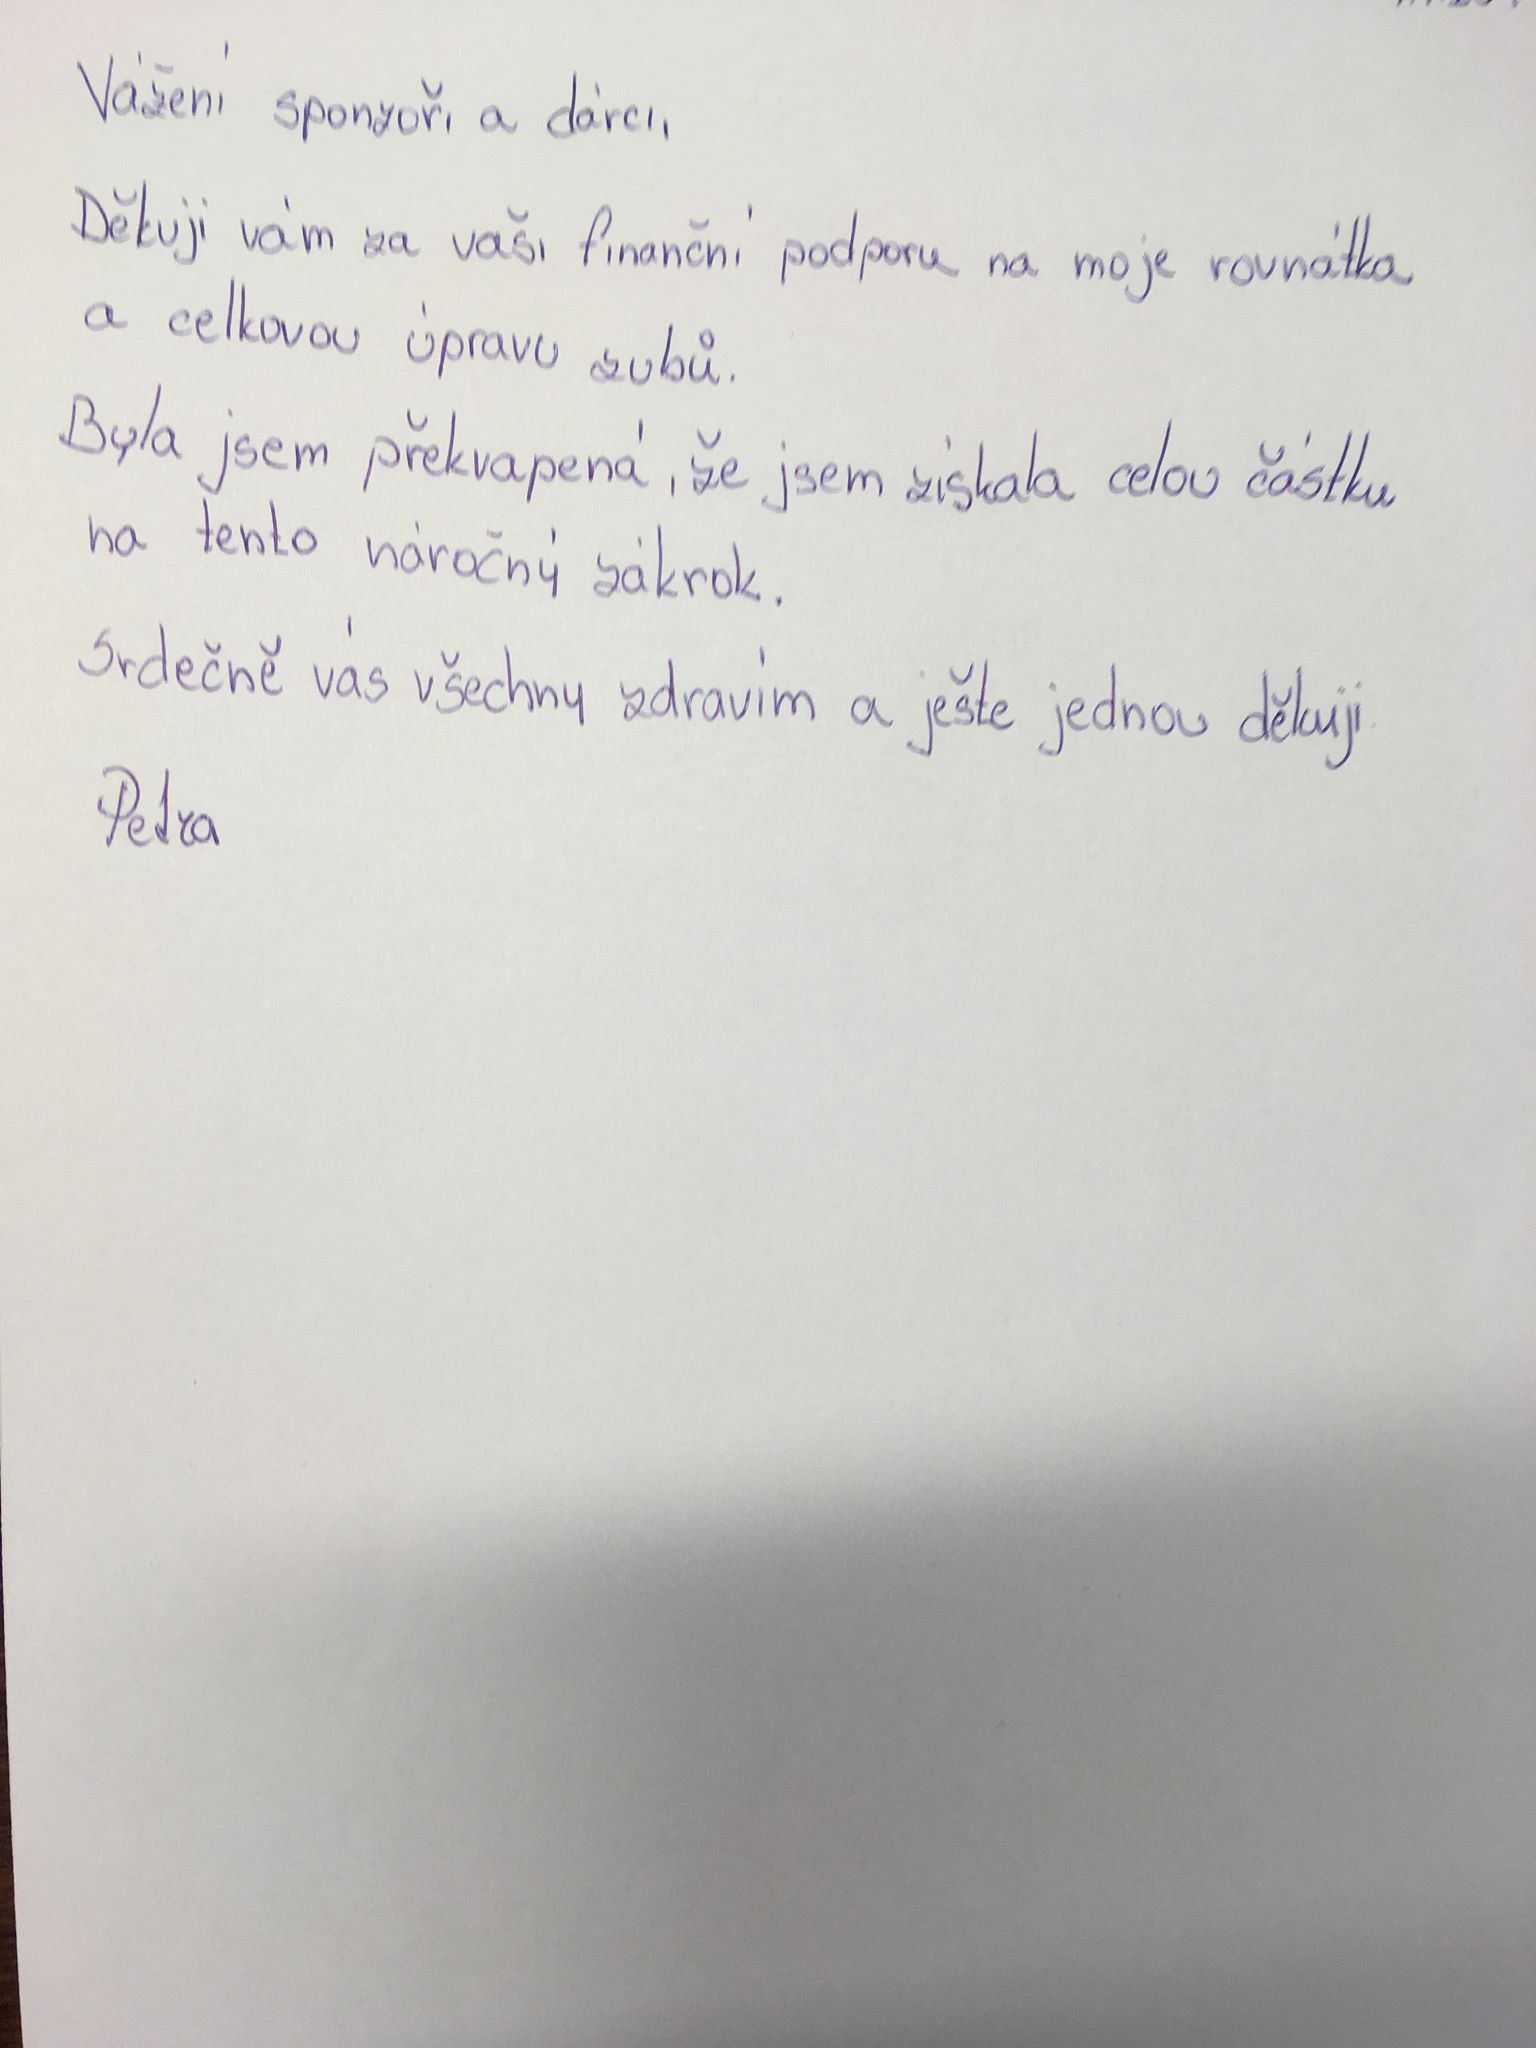 Vážení sponzoři a dárci,
Děkuji vám za vaši finanční podporu na moje rovnátka
a celkovou úpravu zubů.
Byla jsem překvapená, že jsem získala celou částku
na tento náročný zákrok.
Srdečně vás všechny zdravím a ješte jednou děkuji
Petra